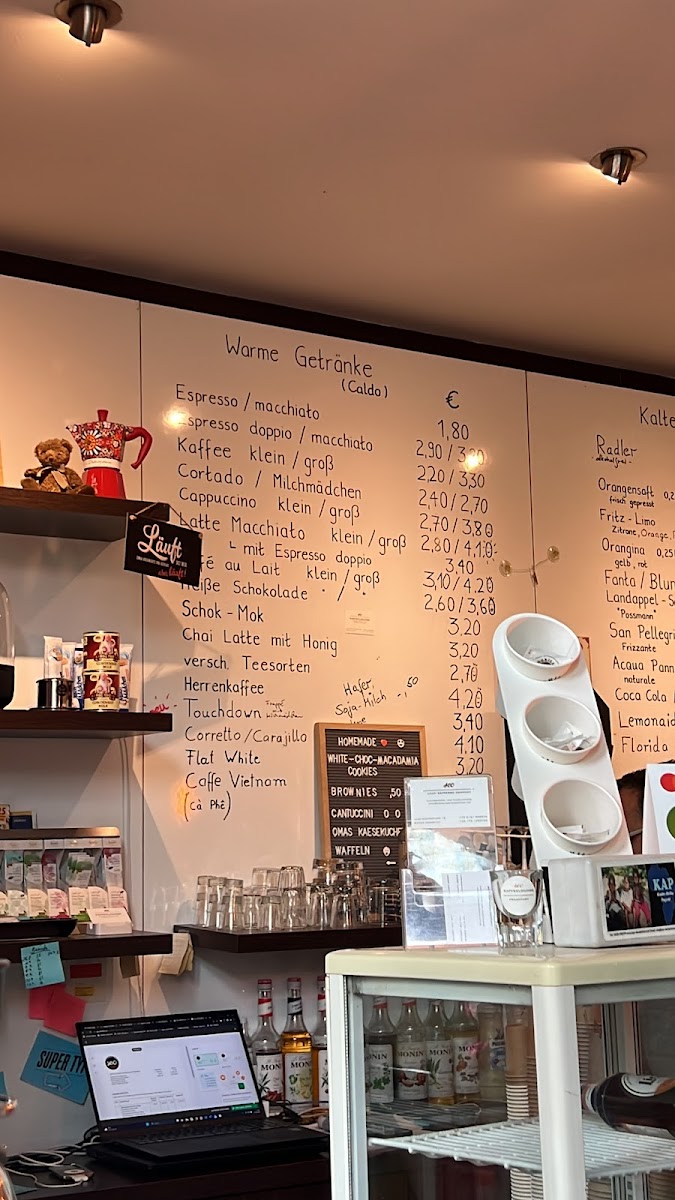 Warme Getränke
(Caldo)
€
Espresso / macchiato 1,80
Espresso doppio / macchiato 2,90 /
Kaffee klein / groß 2,20 / 3,30
Cortado / Milchmädchen 2,40 / 2,70
Cappuccino klein / groß 2,70 / 3,80
Latte Macchiato klein / groß 2,80 / 4,10
mit Espresso doppio 3,40
au Lait klein / groß 3,10 / 4,20
Heiße Schokolade 2,60 / 3,60
Schok - Mok 3,20
Chai Latte mit Honig 3,20
versch. Teesorten 2,70
Herrenkaffee 4,20
Touchdown 3,40
Corretto / Carajillo 4,10
Flat White 3,20
Caffe Vietnam
(Cà Phê)
Hafer
Soja-Milch -,50
Kalte
Radler
alkoholfrei
Orangensaft 0,2
frisch gepresst
Fritz - Limo
Zitrone, Orange,
Orangina 0,25
gelb, rot
Fanta / Blun
Landappel - S
"Possmann"
San Pellegri
Frizzante
Acqua Pann
naturale
Coca Cola /
Lemonaid
Florida
Läuft
läuft!
HOMEMADE
WHITE-CHOC-MACADAMIA
COOKIES
BROWNIES ,50
CANTUCCINI 0 0
OMAS KAESEKUCH
WAFFELN
KAP
SUPER TY
MONIN
MONIN
MONIN
MONIN
MONIN